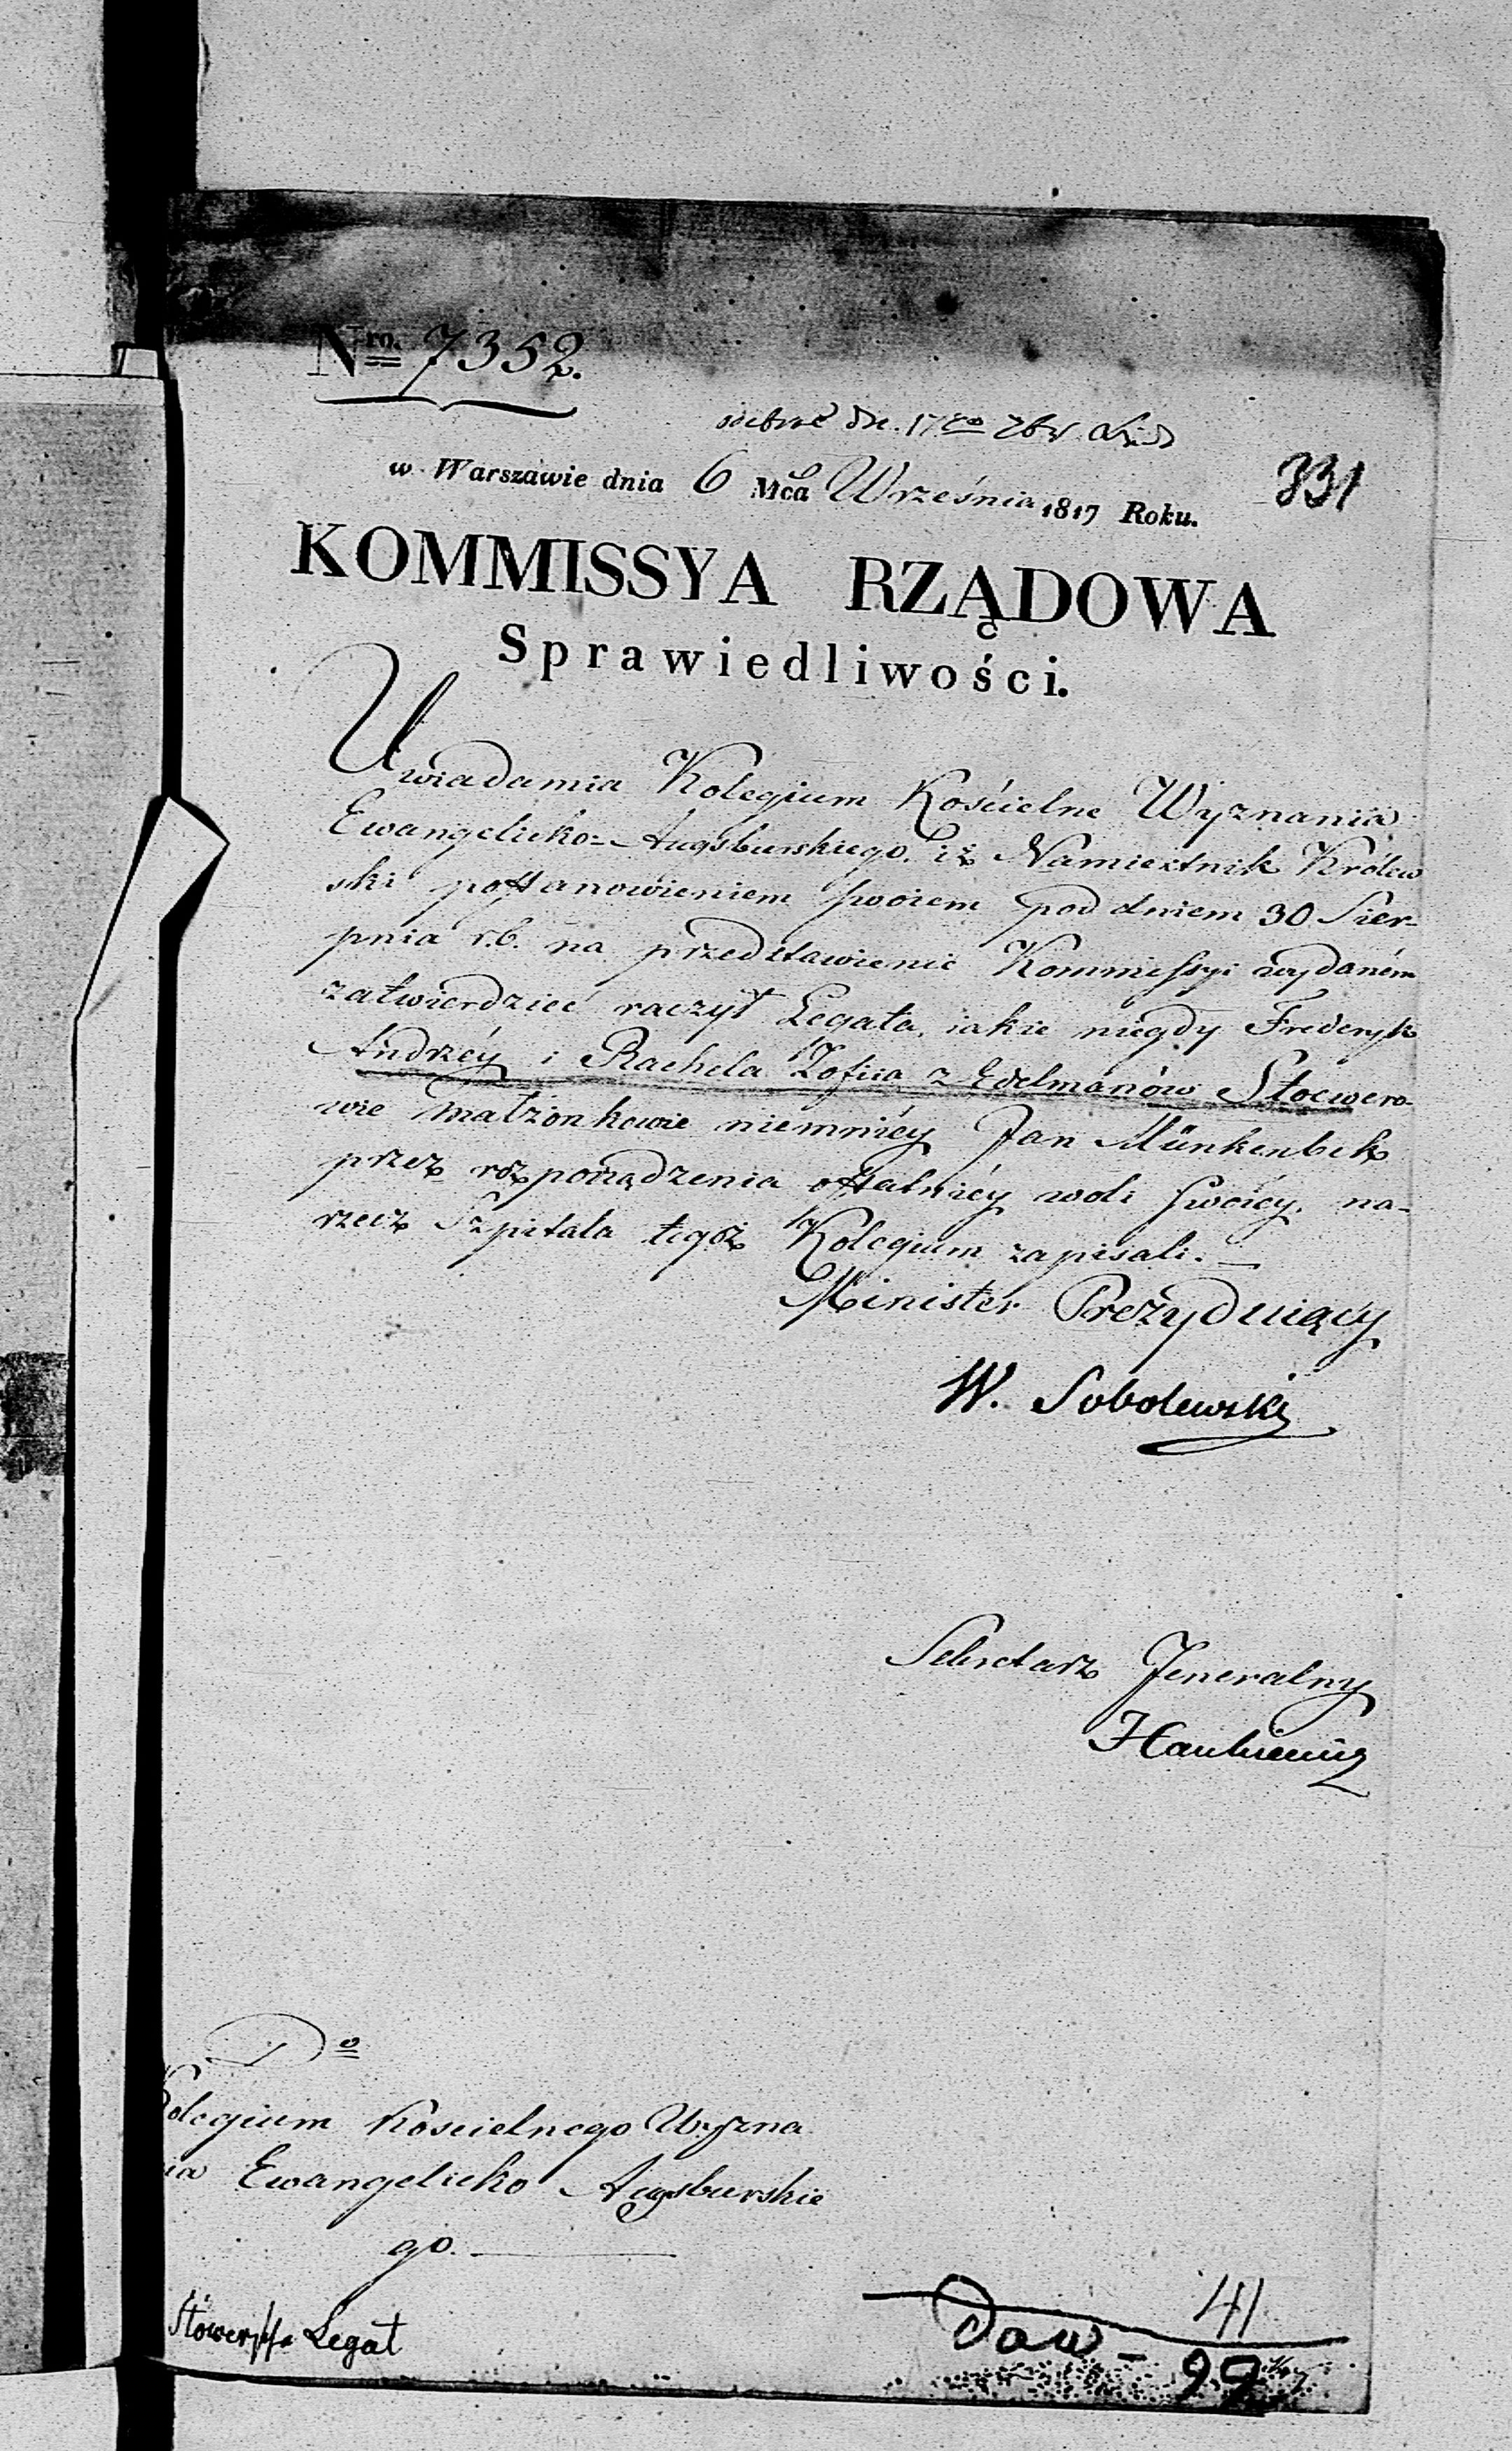 Nro. 7352.
dn. 17
831
w Warszawie dnia 6 Mca Września 1817 Roku.
KOMMISSYA RZĄDOWA
Sprawiedliwości.
Uwiadamia Kolegium Kościelne Wyznania
Ewangelicko-Augsburskiego, iż Namiestnik Królew
ski postanowieniem swoiem pod dniem 30 Sier-
pnia r.b. na przedstawienie Kommissyi wydaném
zatwierdzieć raczył Legata, iakie niegdy Frederyk
Andrzéy i Rachela Zofiia z Edelmanów Stoewero-
wie Małżonkowie niemniéy Jan Münkenbek
przez rozporządzenia ostatniéy woli swoiéy, na-
rzecz Szpitala tegoż Kolegium zapisali. —
Minister Prezyduiący
W. Sobolewski
Sekretarz Jeneralny
Hankiewicz
Do
Kolegium Kościelnego Wyzna
nia Ewangelicko Augsburskie
go. —
Legat
41
Daw - 99